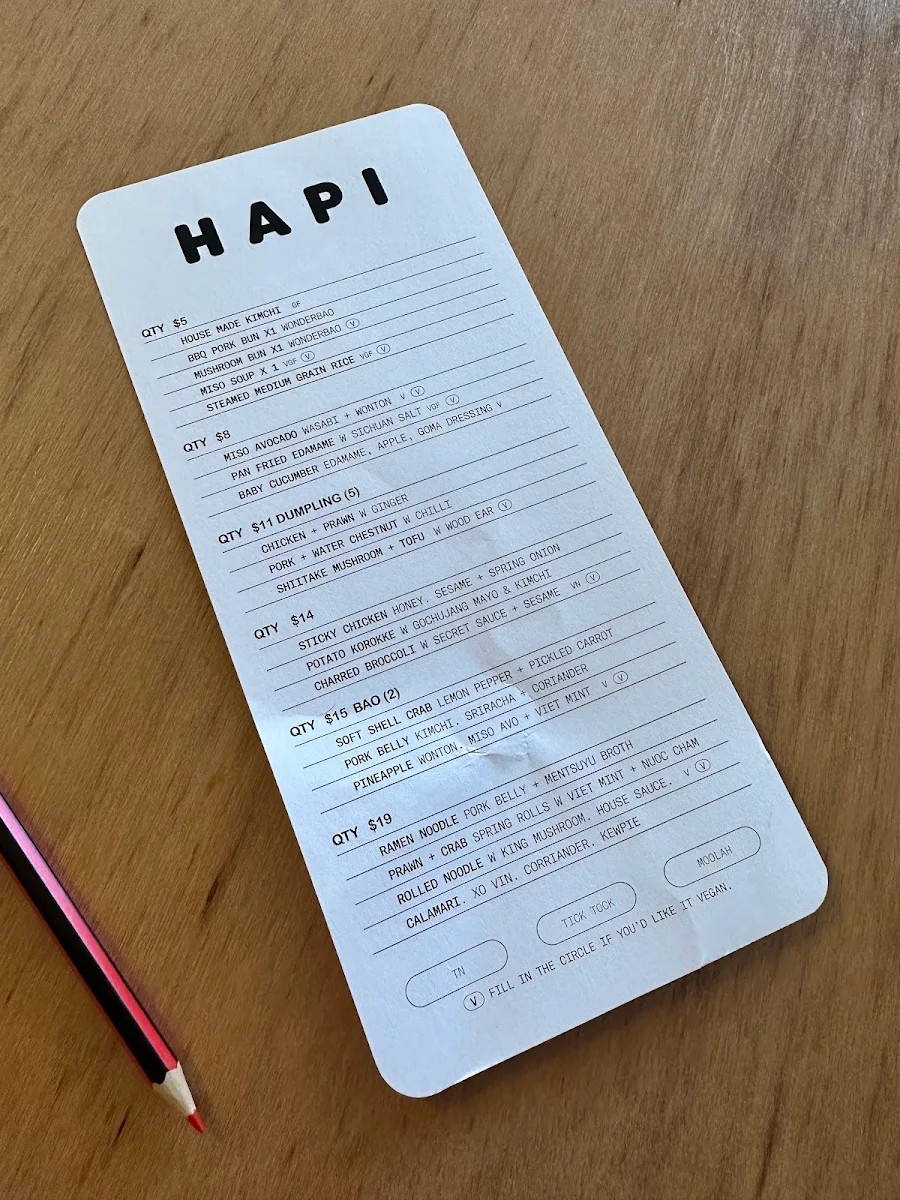 HAPI
QTY $5
HOUSE MADE KIMCHI GF
BBQ PORK BUN X1 WONDERBAO
MUSHROOM BUN X1 WONDERBAO V
MISO SOUP X 1 VGF V
STEAMED MEDIUM GRAIN RICE VGF V
QTY $8
MISO AVOCADO WASABI + WONTON V V
PAN FRIED EDAMAME W SICHUAN SALT VGF V
BABY CUCUMBER EDAMAME, APPLE, GOMA DRESSING V
QTY $11 DUMPLING (5)
CHICKEN + PRAWN W GINGER
PORK + WATER CHESTNUT W CHILLI
SHIITAKE MUSHROOM + TOFU W WOOD EAR V
QTY $14
STICKY CHICKEN HONEY, SESAME + SPRING ONION
POTATO KOROKKE W GOCHUJANG MAYO & KIMCHI
CHARRED BROCCOLI W SECRET SAUCE + SESAME VN V
QTY $15 BAO (2)
SOFT SHELL CRAB LEMON PEPPER + PICKLED CARROT
PORK BELLY KIMCHI, SRIRACHA + CORIANDER
PINEAPPLE WONTON, MISO AVO + VIET MINT V V
QTY $19
RAMEN NOODLE PORK BELLY + MENTSUYU BROTH
PRAWN + CRAB SPRING ROLLS W VIET MINT + NUOC CHAM
ROLLED NOODLE W KING MUSHROOM. HOUSE SAUCE. V V
CALAMARI. XO VIN. CORRIANDER. KEWPIE
TN TICK TOCK MOOLAH
V FILL IN THE CIRCLE IF YOU'D LIKE IT VEGAN.